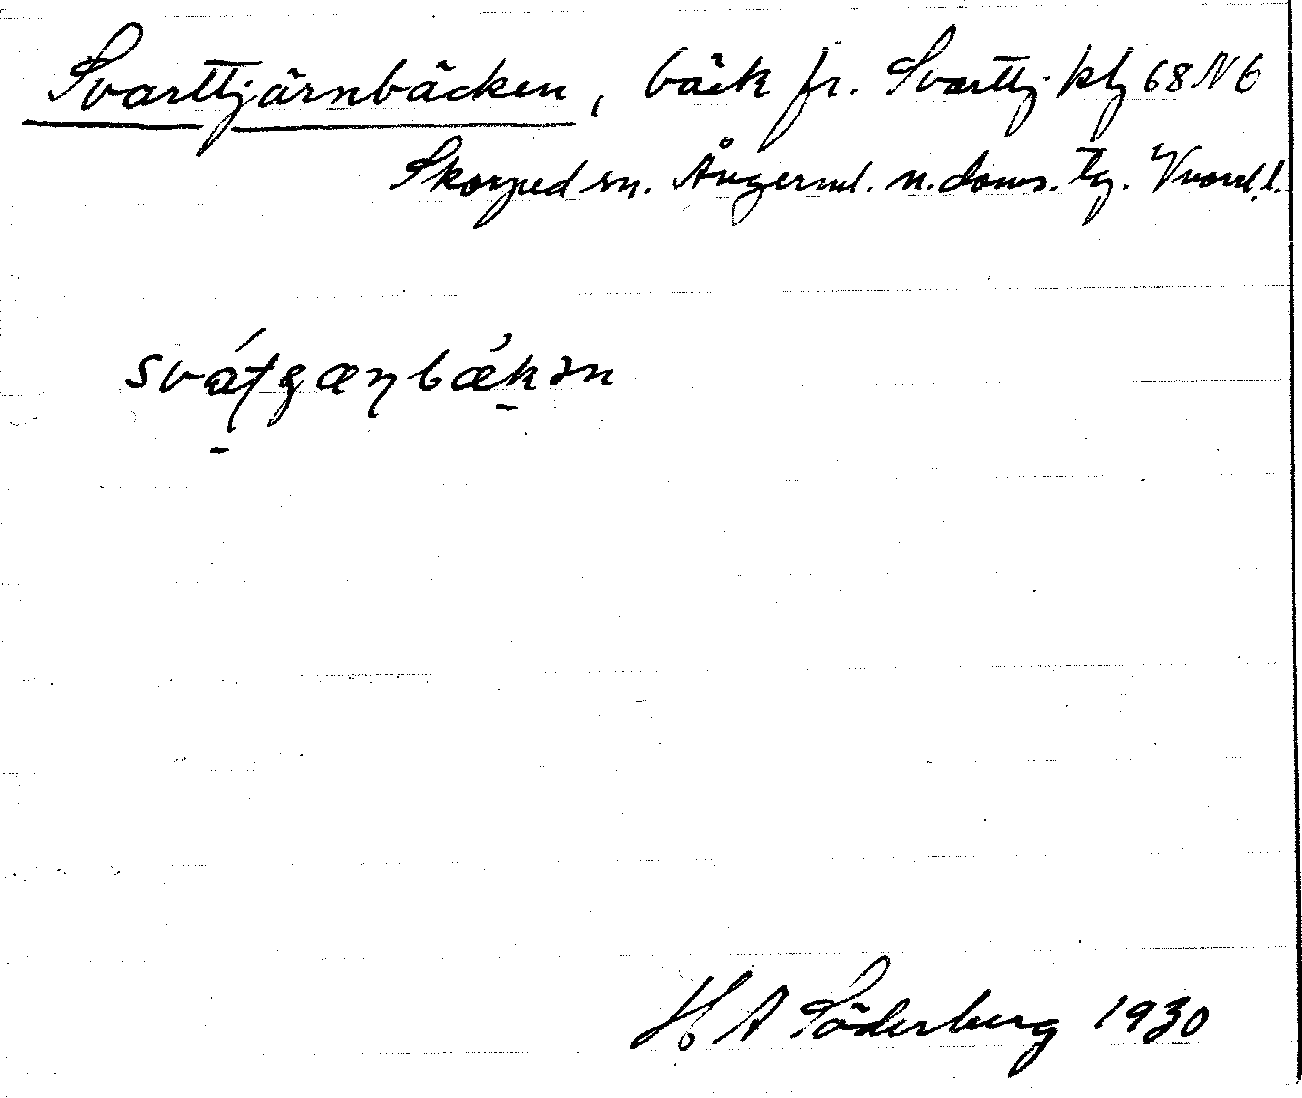 Svarttjärnbäcken, bäck fr. Svarttj. kbl 68 N b
Skorped sn. Ångerml. n. doms. tg. Vnorrl. l.
sváʈgæɳbækən
H A Söderberg 1930